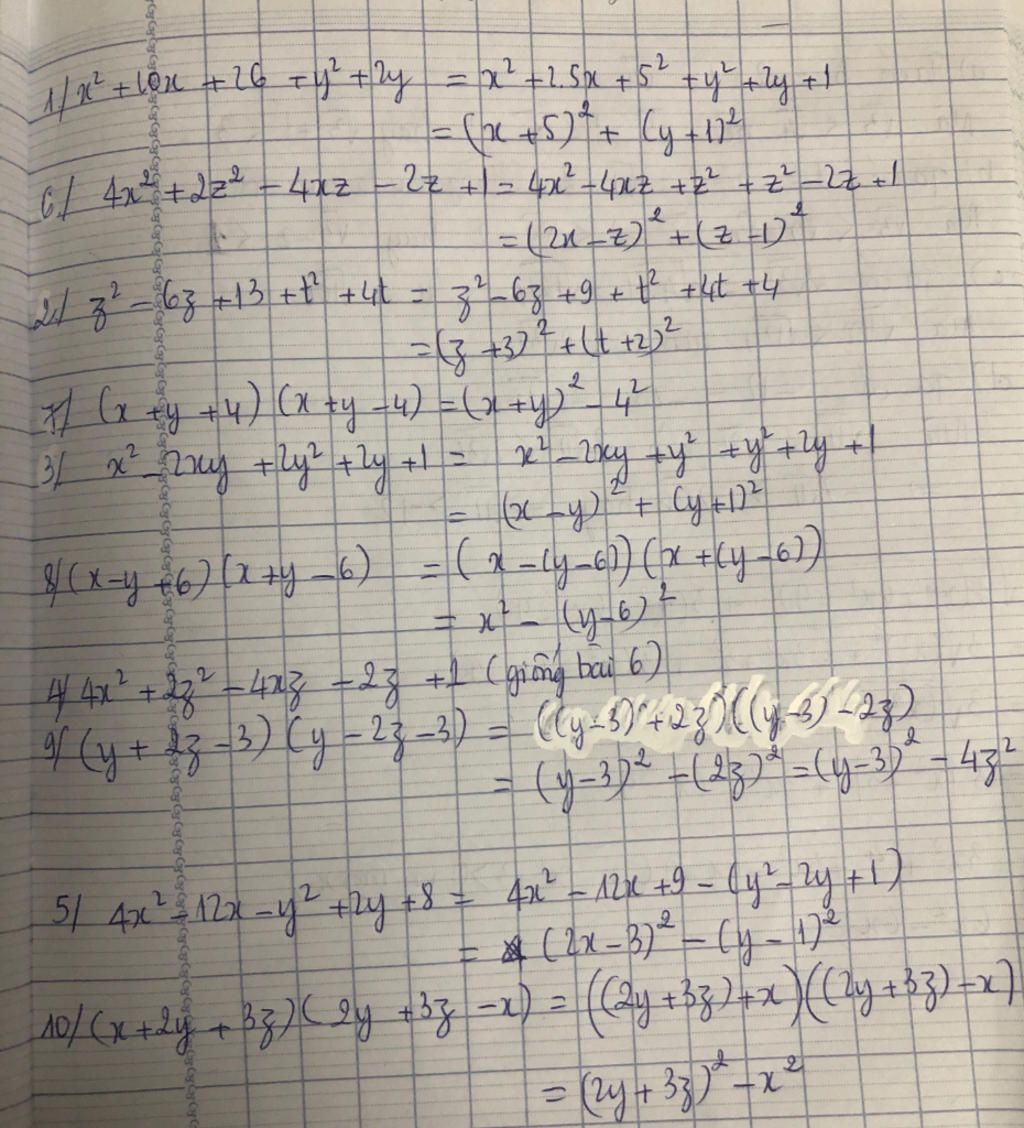 1/ x² + 10x + 26 + y² + 2y = x² + 2.5x + 5² + y² + 2y + 1
= (x + 5)² + (y + 1)²
6/ 4x² + 2z² - 4xz - 2z + 1 = 4x² - 4xz + z² + z² - 2z + 1
= (2x - z)² + (z - 1)²
2/ z² - 6z + 13 + t² + 4t = z² - 6z + 9 + t² + 4t + 4
= (z + 3)² + (t + 2)²
7/ (x + y + 4) (x + y - 4) = (x + y)² - 4²
3/ x² - 2xy + 2y² + 2y + 1 = x² - 2xy + y² + y² + 2y + 1
= (x - y)² + (y + 1)²
8/ (x - y + 6) (x + y - 6) = (x - (y - 6)) (x + (y - 6))
= x² - (y - 6)²
4/ 4x² + 2z² - 4xz - 2z + 1 (giống bài 6)
9/ (y + 2z - 3) (y - 2z - 3) = ((y - 3) + 2z) ((y - 3) - 2z)
= (y - 3)² - (2z)² = (y - 3)² - 4z²
5/ 4x² - 12x - y² + 2y + 8 = 4x² - 12x + 9 - (y² - 2y + 1)
= (2x - 3)² - (y - 1)²
10/ (x + 2y + 3z) (2y + 3z - x) = ((2y + 3z) + x) ((2y + 3z) - x)
= (2y + 3z)² - x²